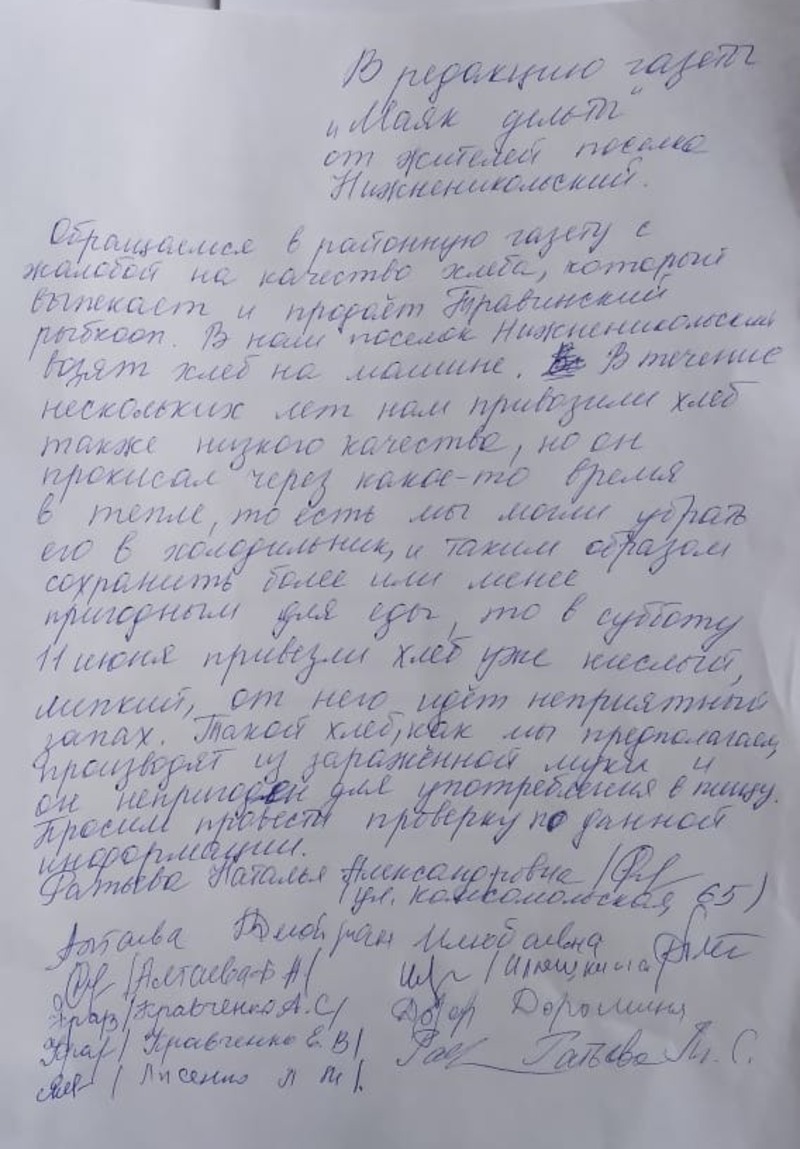 В редакцию газеты
„Маяк дельты"
от жителей поселка
Нижненикольский.
Обращаемся в районную газету с
жалобой на качество хлеба, который
выпекает и продаёт Травинский
рыбкооп. В наш поселок Нижненикольский
возят хлеб на машине. В течение
нескольких лет нам привозили хлеб
также низкого качества, но он
прокисал через какое-то время
в тепле, то есть мы могли убрать
его в холодильник, и таким образом
сохранить более или менее
пригодным для еды, то в субботу
11 июня привезли хлеб уже кислый,
липкий, от него идёт неприятный
запах. Такой хлеб, как мы предполагаем,
производят из заражённой муки и
он непригоден для употребления в пищу.
Просим провести проверку по данной
информации.
Фатьева Наталья Александровна
(ул. Комсомольская, 65)
Алтаева
/Алтаева А/
/Кравченко А.С/
/Кравченко Е.В/ Доромина
/Лисенко Л